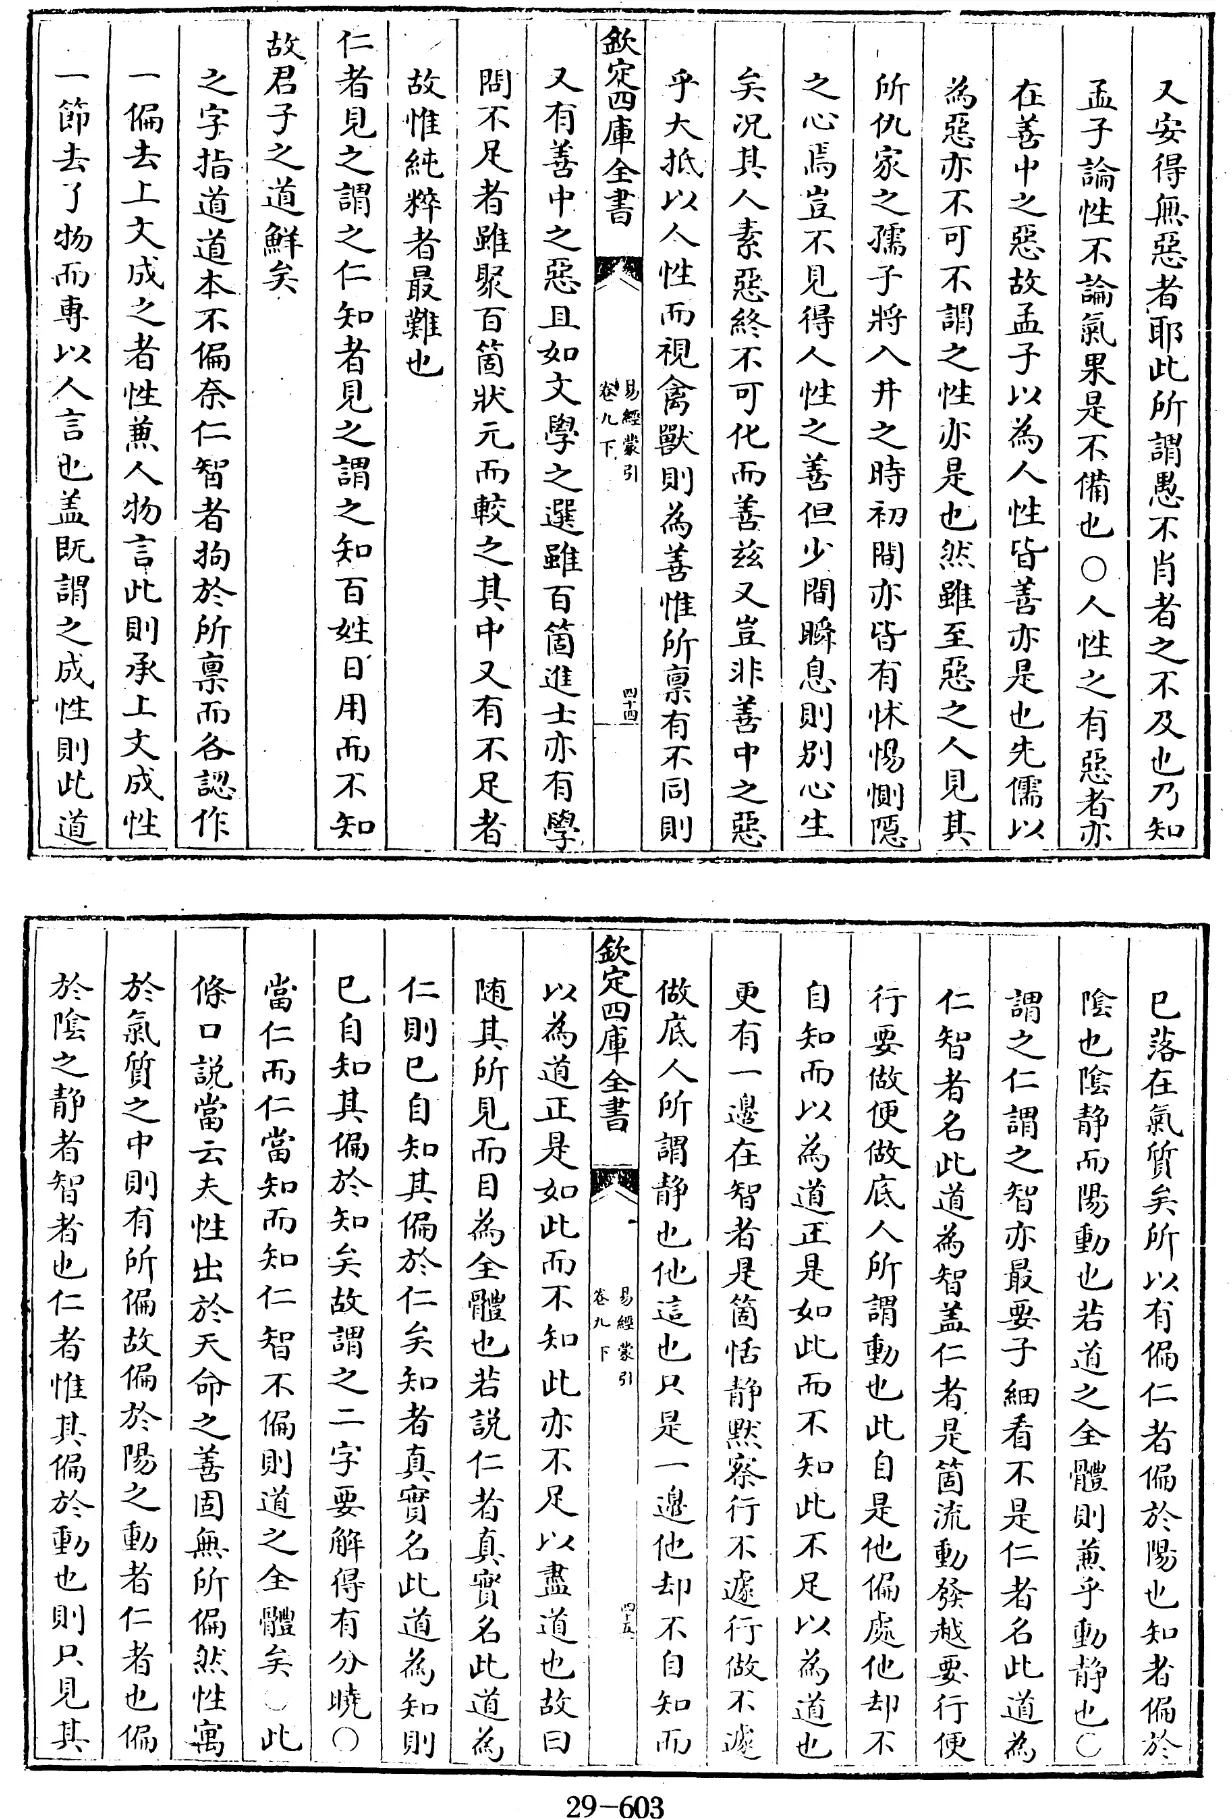 又安得無惡者耶此所謂愚不肖者之不及也乃知
孟子論性不論氣果是不備也○人性之有惡者亦
在善中之惡故孟子以為人性皆善亦是也先儒以
為惡亦不可不謂之性亦是也然雖至惡之人見其
所仇家之孺子將入井之時初間亦皆有怵惕惻隱
之心焉豈不見得人性之善但少間瞬息則别心生
矣况其人素惡終不可化而善兹又豈非善中之惡
乎大抵以人性而視禽獸則為善惟所禀有不同則
欽定四庫全書
易經蒙引
卷九下
四十四
又有善中之惡且如文學之選雖百箇進士亦有學
問不足者雖聚百箇狀元而較之其中又有不足者
故惟純粹者最難也
仁者見之謂之仁知者見之謂之知百姓日用而不知
故君子之道鮮矣
之字指道道本不偏奈仁智者狥於所禀而各認作
一偏去上文成之者性兼人物言此則承上文成性
一節去了物而専以人言也盖既謂之成性則此道
已落在氣質矣所以有偏仁者偏於陽也知者偏於
陰也陰静而陽動也若道之全體則兼乎動静也○
謂之仁謂之智亦最要子細看不是仁者名此道為
仁智者名此道為智盖仁者是箇流動發越要行便
行要做便做底人所謂動也此自是他偏處他却不
自知而以為道正是如此而不知此不足以為道也
更有一邉在智者是箇恬静黙察行不遽行做不遽
做底人所謂静也他這也只是一邉他却不自知而
欽定四庫全書
易經蒙引
卷九下
四十五
以為道正是如此而不知此亦不足以盡道也故曰
随其所見而目為全體也若説仁者真實名此道為
仁則已自知其偏於仁矣知者真實名此道為知則
已自知其偏於知矣故謂之二字要解得有分曉○
當仁而仁當知而知仁智不偏則道之全體矣○此
條口説當云夫性出於天命之善固無所偏然性寓
於氣質之中則有所偏故偏於陽之動者仁者也偏
於陰之静者智者也仁者惟其偏於動也則只見其
29-603